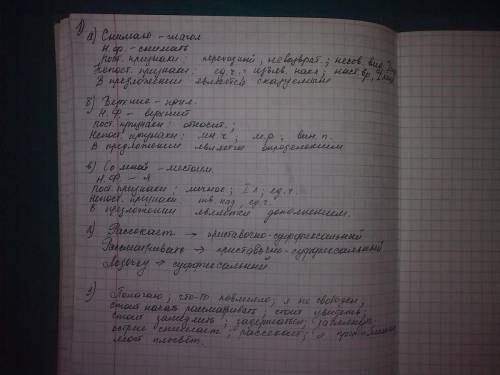 1)
а) Снимаю - глагол
Н.ф. - снимать
Пост. признаки: переходный, невозврат., несов. вид,
Непост. признаки: ед.ч., изъяв. накл., наст. вр.,
В предложении является сказуемым
б) Верхние - прил.
Н.Ф - верхний
Пост. признаки: относит.;
Непост признаки: мн.ч.; вин. п.
В предложении является определением
в) Со мной - местоим.
Н.Ф. - Я
Пост. признаки: личное; I л; ед.ч.
Непост. признаки тв. пад, ед.ч.
В предложении является дополнением.
Рассекает → приставочно-суффиксальный
Рассматривать → приставочно-суффиксальный
→ суффиксальный
3)
Полагаю; что-то повлияло; я не свободен;
стоит начать рассматривать; стоит увидеть;
стоит замедлить; задержаться;
рассекает;
плывёт.